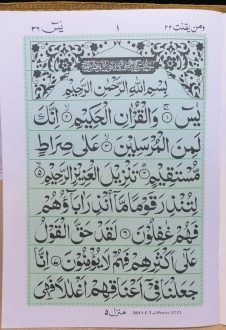 وَمَن يَقنُت ٢٢ ١ يٰسٓ ٣٦
بِسْمِ اللّٰهِ الرَّحْمٰنِ الرَّحِيْمِ
يٰسٓ ۚ وَالْقُرْاٰنِ الْحَكِيْمِ ۙ اِنَّكَ
لَمِنَ الْمُرْسَلِيْنَ ۙ عَلٰى صِرَاطٍ
مُّسْتَقِيْمٍ ؕ تَنْزِيْلَ الْعَزِيْزِ الرَّحِيْمِ ۙ
لِتُنْذِرَ قَوْمًا مَّاۤ اُنْذِرَ اٰبَآؤُهُمْ
فَهُمْ غٰفِلُوْنَ ۶ لَقَدْ حَقَّ الْقَوْلُ
عَلٰۤى اَكْثَرِهِمْ فَهُمْ لَا يُؤْمِنُوْنَ ۷ اِنَّا
جَعَلْنَا فِيْۤ اَعْنَاقِهِمْ اَغْلٰلًا فَهِيَ
منزل ۵